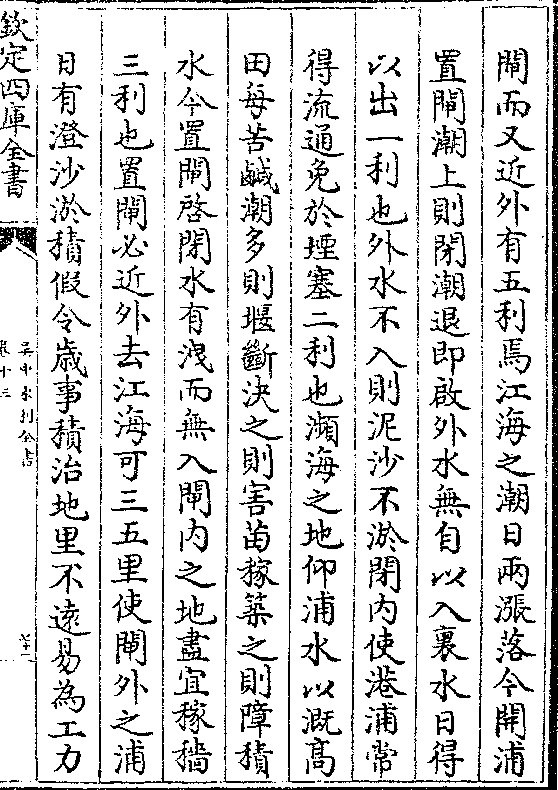 閘而又近外有五利焉江海之潮日兩漲落今開浦
置閘潮上則閉潮退即啟外水無自以入裏水日得
以出一利也外水不入則泥沙不淤閉内使港浦常
得流通免於堙塞二利也瀕海之地仰浦水以溉髙
田每苦鹹潮多則堰斷決之則害苗稼築之則障積
水今置閘啓閉水有洩而無入閘内之地盡宜稼穡
三利也置閘必近外去江海可三五里使閘外之浦
日有澄沙淤積假令歳事積治地里不遠易為工力
欽定四庫全書
吳中水利全書
卷十三